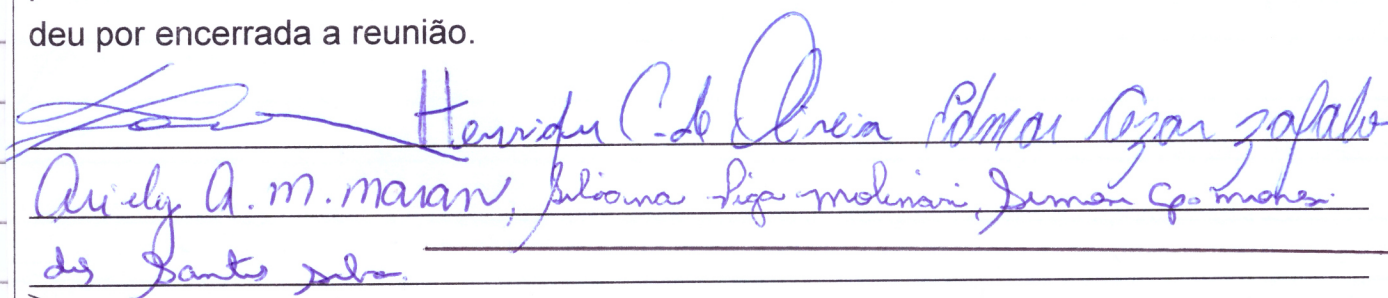 deu por encerrada a reunião.
Henrique C. de Oliveira Edmar Cezar Zafalo
Ariely A. M. Maran, Silvana Piga Molinari, Simone
dos Santos Silva.